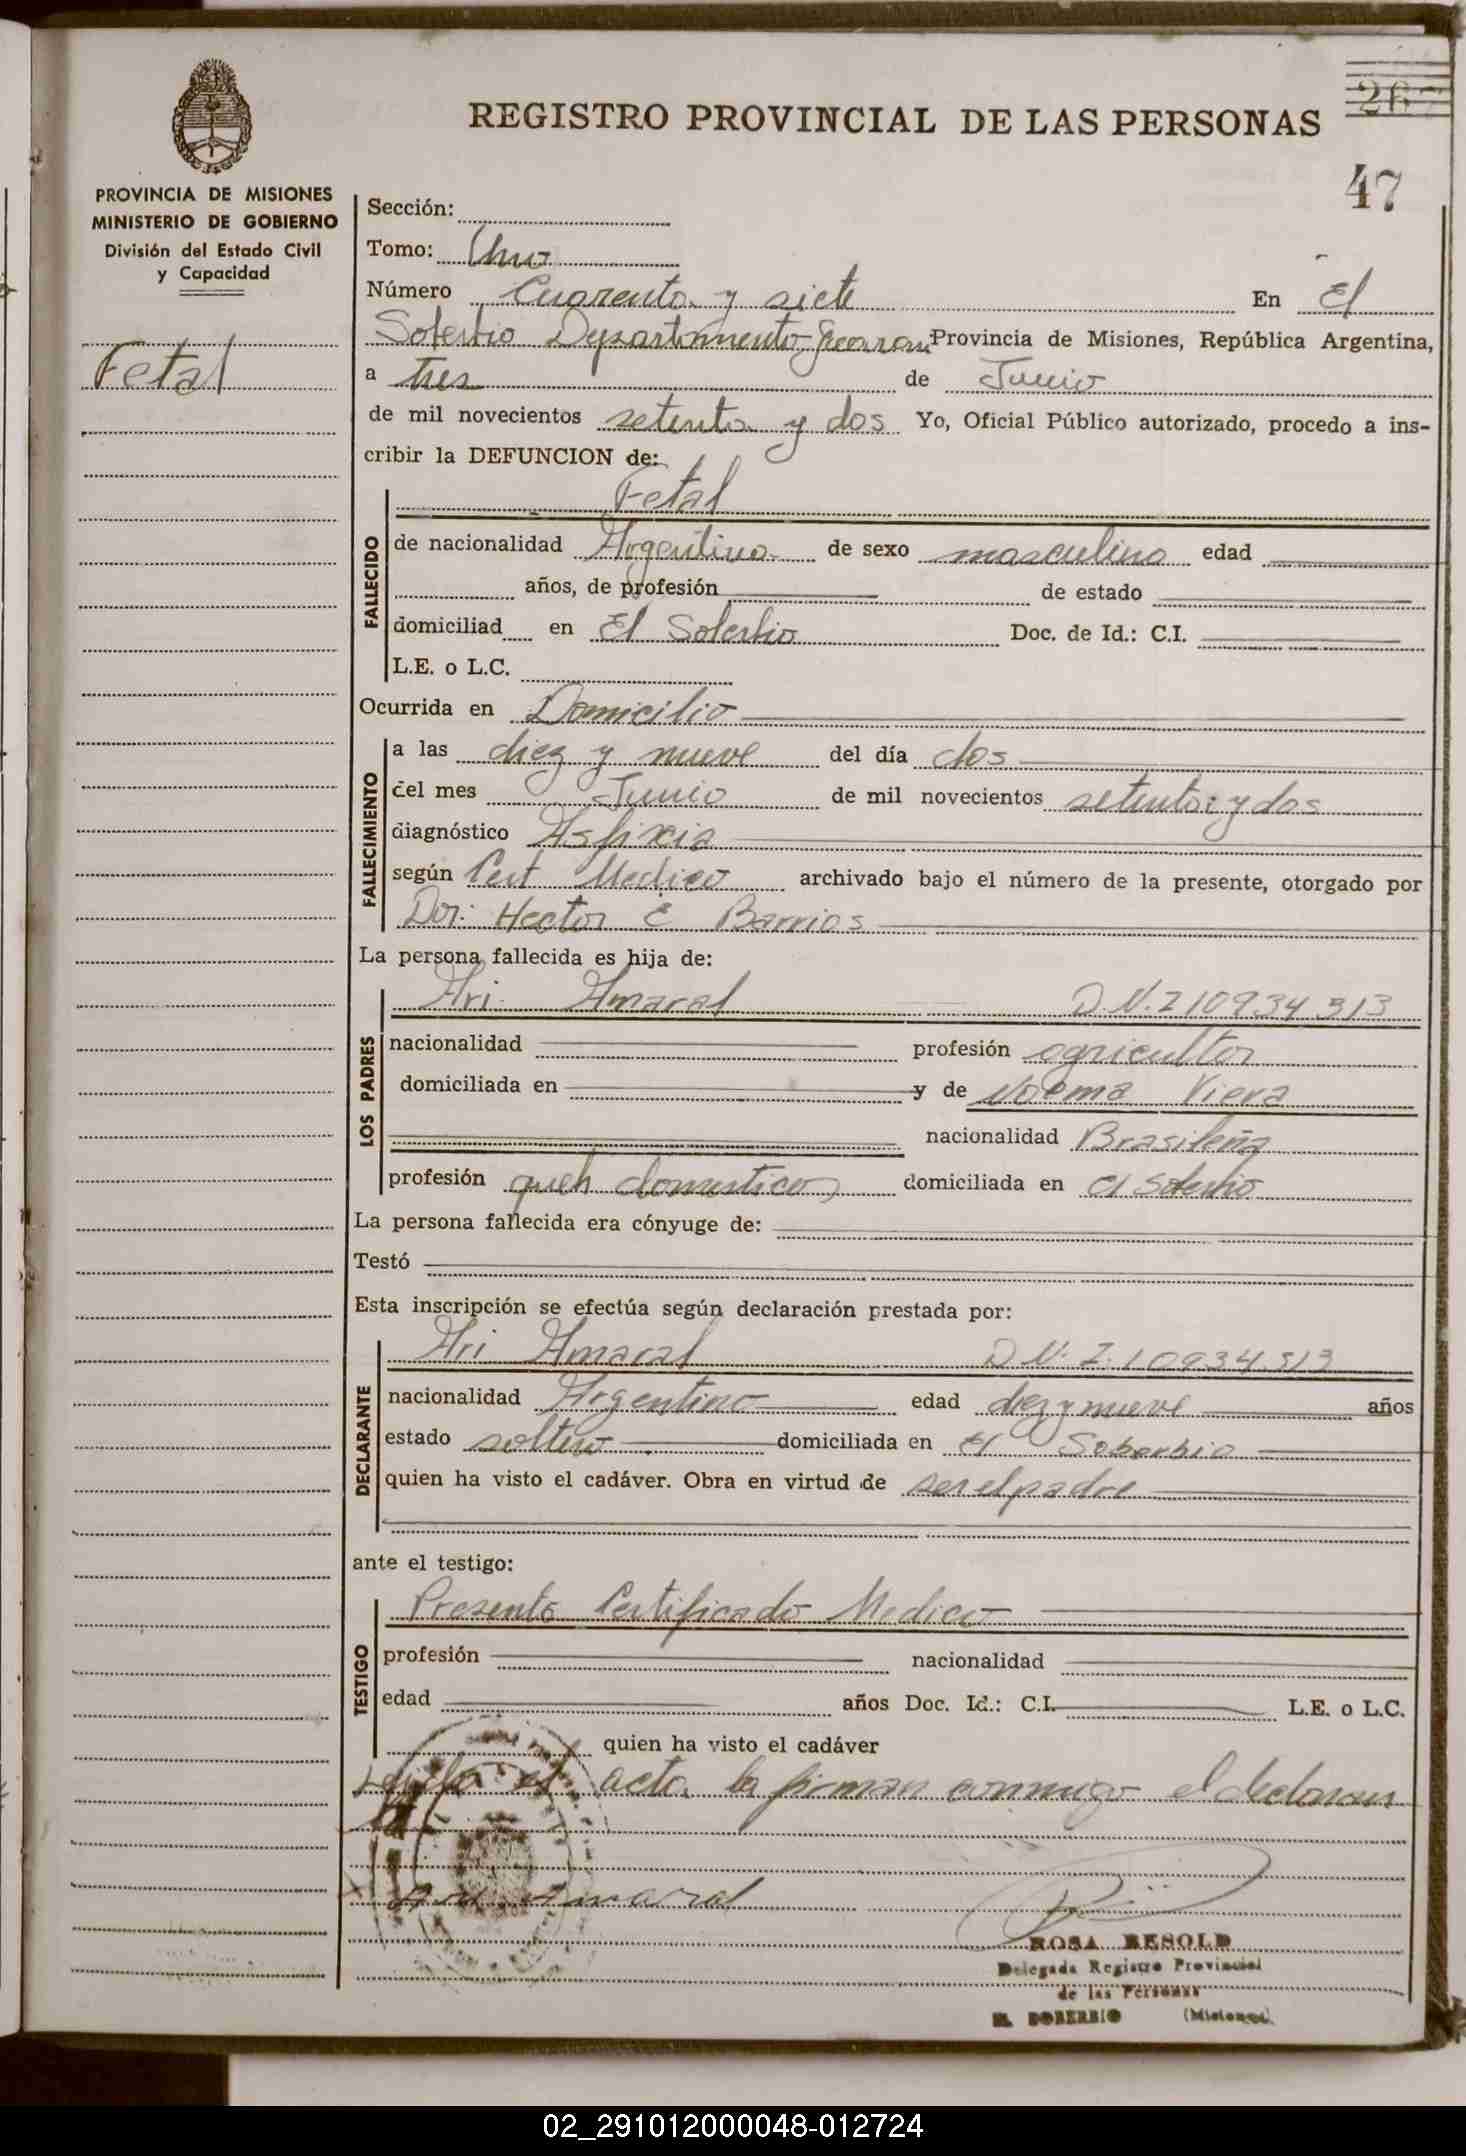 REGISTRO PROVINCIAL DE LAS PERSONAS
267
47
PROVINCIA DE MISIONES
MINISTERIO DE GOBIERNO
División del Estado Civil
y Capacidad
Fetal
Sección:
Tomo: Uno
Número Cuarenta y siete En El
Soberbio Departamento Guarani Provincia de Misiones, República Argentina,
a tres de Junio
de mil novecientos setenta y dos Yo, Oficial Público autorizado, procedo a ins-
cribir la DEFUNCION de:
Fetal
FALLECIDO
de nacionalidad Argentina de sexo masculino edad
años, de profesión de estado
domiciliad en El Soberbio Doc. de Id.: C.I.
L.E. o L.C.
Ocurrida en Domicilio
FALLECIMIENTO
a las diez y nueve del día dos
del mes Junio de mil novecientos setenta y dos
diagnóstico Asfixia
según Cert Medico archivado bajo el número de la presente, otorgado por
Dor: Hector E Barrios
La persona fallecida es hija de:
LOS PADRES
Ari Amaral D.N.I 10934313
nacionalidad profesión agricultor
domiciliada en y de Noema Viera
nacionalidad Brasileña
profesión queh domesticos domiciliada en el Soberbio
La persona fallecida era cónyuge de:
Testó
Esta inscripción se efectúa según declaración prestada por:
DECLARANTE
Ari Amaral D.N.I. 10934.313
nacionalidad Argentino edad diez y nueve años
estado soltero domiciliada en El Soberbio
quien ha visto el cadáver. Obra en virtud de ser el padre
ante el testigo:
TESTIGO
Presento Certificado Medico
profesión nacionalidad
edad años Doc. Id.: C.I. L.E. o L.C.
quien ha visto el cadáver
Leida el acta la firman conmigo el declaran
Ari Amaral
ROSA RESOLD
Delegada Registro Provincial
de las Personas
EL SOBERBIO (Misiones)
02_291012000048-012724